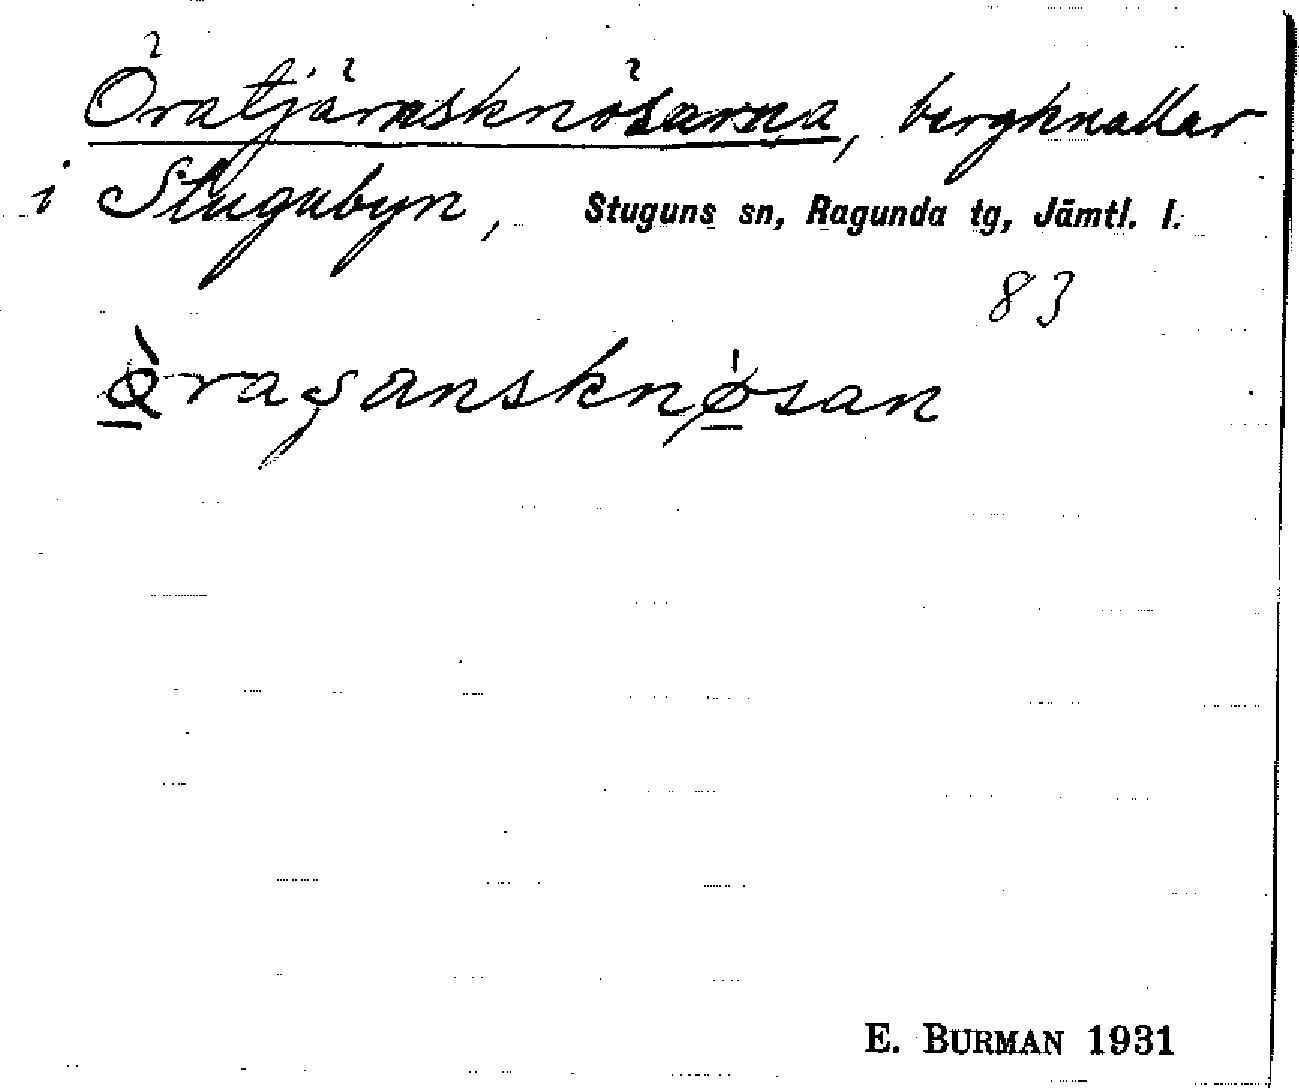 Öratjärnsknösarna, bergknallar
i Stugubyn, Stuguns sn, Ragunda tg, Jämtl. l.
83
ø̠̀raʂansknǿ̠san
E. BURMAN 1931